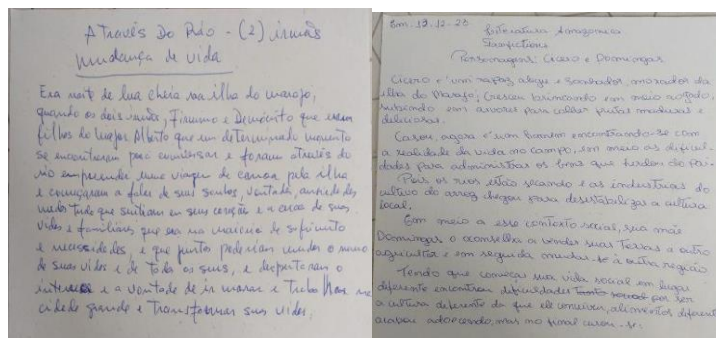 Através Do Rio - (2) irmãs
mudança de vida
Era noite de lua cheia na ilha do marajó,
quando os dois irmãos, Firmino e Demócrito que eram
filhos do major Alberto que em determinado momento
se encontraram para conversar e foram através do
rio emprende uma viagem de canoa pela ilha
e começaram a falar de seus sonhos, vontades, ansiedades
medos tudo que sentiam em seus coração e a cerca de suas
vidas e familiares que era na maioria de sofrimento
e necessidades, e que juntos poderiam mudar o rumo
de suas vidas e de toda os seus, e despertaram o
interesse e a vontade de ir morar e trabalhar na
cidade grande e transformar suas vidas.
Em. 19-12-20
Literatura Amazonica
Personagens: Cicero e Domingas
Cicero é um rapaz alegre e sonhador, morador da
ilha do Marajó; Cresceu brincando em meio ao gado,
subindo em arvores para colher frutas maduras e
deliciosas.
Casou, agora é um homem encontrando-se com
a realidade da vida no campo, em meio as dificul-
dades para administrar os bens que herdou do pai.
Pois os rios estão secando e as industrias do
cultivo do arroz chegam para desestabilizar a cultura
local.
Em meio a esse contexto social, sua mãe
Domingas o aconselha a vender suas terras a outro
agricultor e em seguida mudar-se à outra região.
Tendo que começar sua vida social em lugar
diferente encontrou dificuldades por ser
a cultura diferente da que ele conviveu, alimentos diferent
acabou adoecendo, mas no final curou-se.